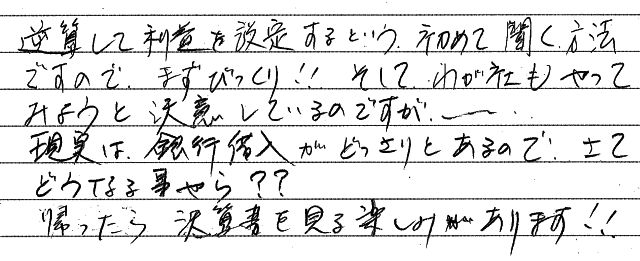 逆算して利益を設定するという、初めて聞く方法
ですので、まずびっくり!! そして、わが社も やって
みようと 決意しているのですが、〜‥
現実は、銀行借入がどっさりとあるので、さて
どうなる事やら??
帰ったら 決算書を見る楽しみがあります!!